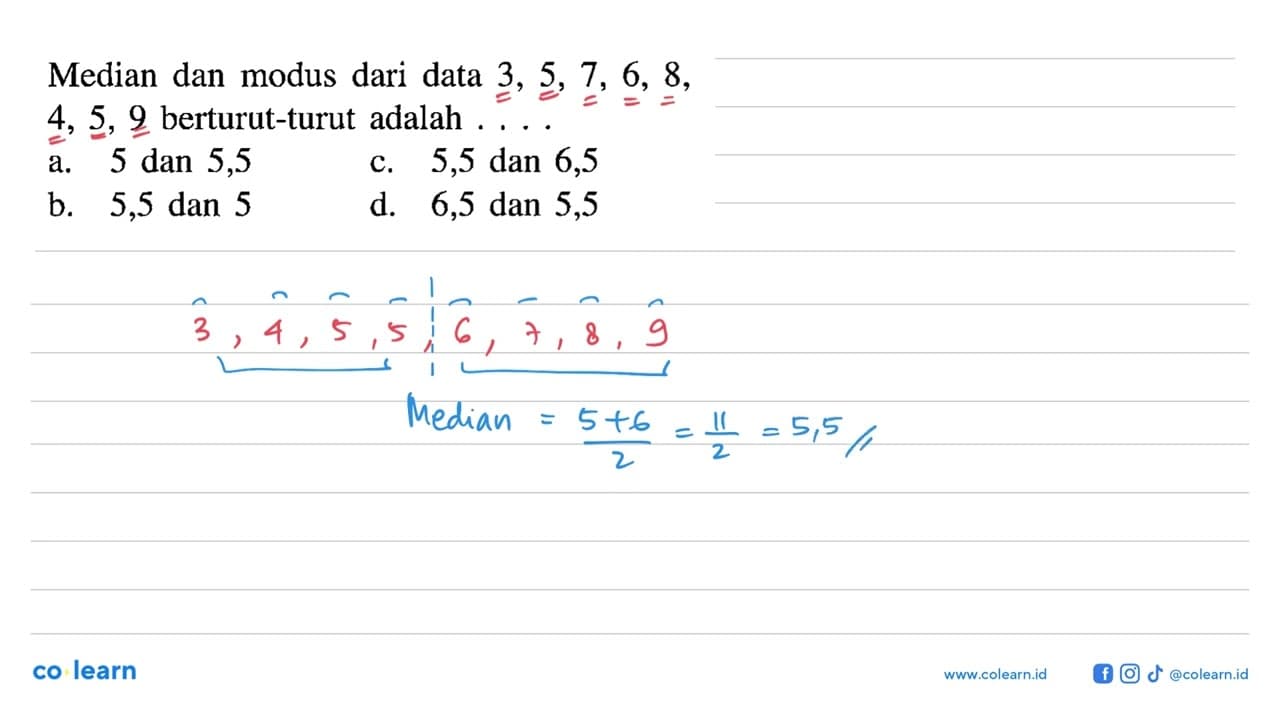 Median dan modus dari data 3, 5, 7, 6, 8,
4, 5, 9 berturut-turut adalah . . . .
a. 5 dan 5,5 c. 5,5 dan 6,5
b. 5,5 dan 5 d. 6,5 dan 5,5
3, 4, 5, 5, 6, 7, 8, 9
Median = 5+6/2 = 11/2 = 5,5
co learn
www.colearn.id @colearn.id